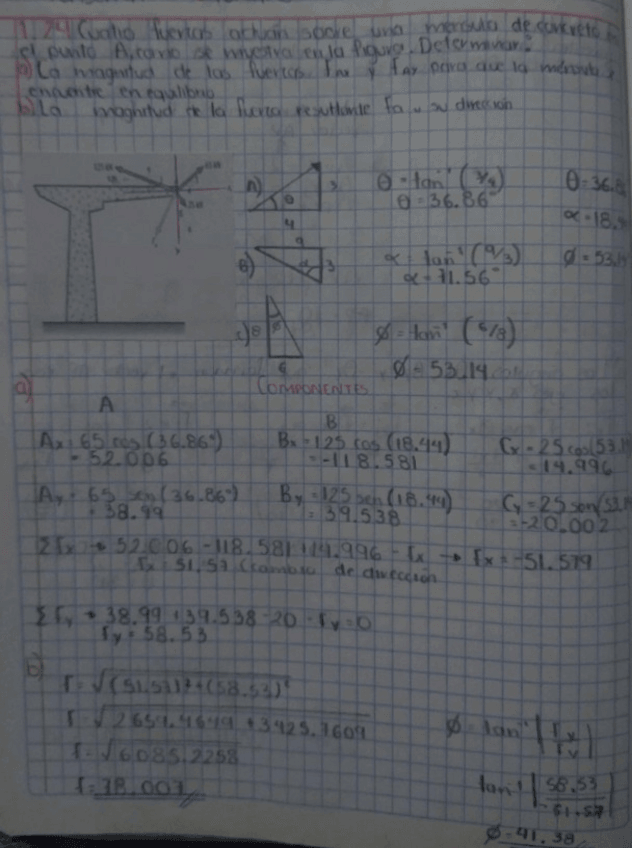 1.24 Cuatro fuerzas actúan sobre una mensula de concreto
el punto A, como se muestra en la figura. Determinar:
a) La magnitud de las fuerzas Fax y Fay para que la mensula
encuentre en equilibrio
b) La magnitud de la fuerza resultante Fa y su dirección
A) θ = tan⁻¹ (3/4) θ = 36.8
θ = 36.86°
4
α = 18.4
9
B) 3 α = tan⁻¹ (9/3) ϕ = 53.1
α = 71.56°
c) 8 ϕ = tan⁻¹ (6/8)
6 ϕ = 53.14
a) COMPONENTES
A B
Ax = 65 cos (36.86°) Bx = 125 cos (18.44) Cx = 25 cos (53.14
= 52.006 = -118.581 = 14.996
Ay = 65 sen (36.86°) By = 125 sen (18.44) Cy = 25 sen (53.14
= 38.99 = 39.538 = -20.002
ΣFx → 52.006 - 118.581 + 14.996 - Fx → Fx = -51.579
Fx = 51.57 (cambia de dirección
ΣFy → 38.99 + 39.538 - 20 - Fy = 0
Fy = 58.53
b)
F = √(51.57)² + (58.53)²
F = √2659.4649 + 3425.7609
F = √6085.2258
F = 78.007
ϕ = tan⁻¹ |Fx/Fy|
tan⁻¹ |58.53/-51.57|
ϕ = 41.38